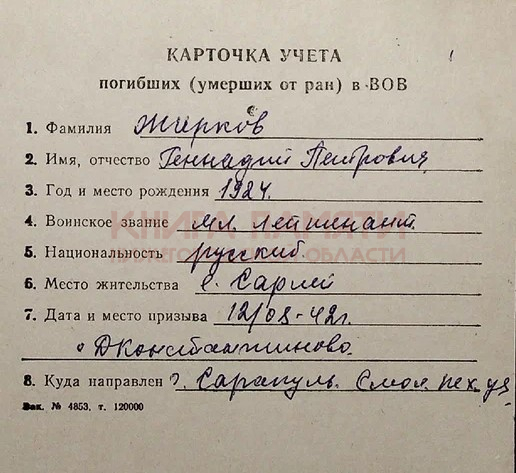 КАРТОЧКА УЧЕТА
погибших (умерших от ран) в ВОВ
1. Фамилия Жирков
2. Имя, отчество Геннадий Петрович
3. Год и место рождения 1924.
4. Воинское звание мл. лейтенант.
5. Национальность русский.
КНИГА ПАМЯТИ
НИЖЕГОРОДСКОЙ ОБЛАСТИ
6. Место жительства с. Сарлей
7. Дата и место призыва 12/08-42г.
ДКонстантиново.
8. Куда направлен г. Сарапуль. Смол. пех. уч
Зак. № 4853, т. 120000